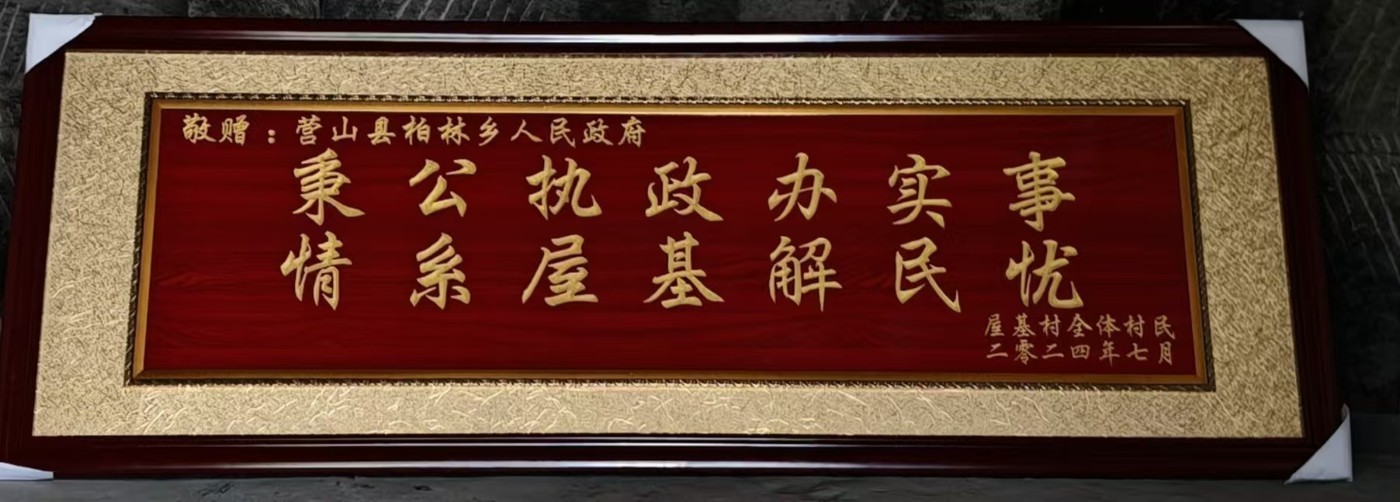 敬赠：营山县柏林乡人民政府
秉公执政办实事
情系屋基解民忧
屋基村全体村民
二零二四年七月